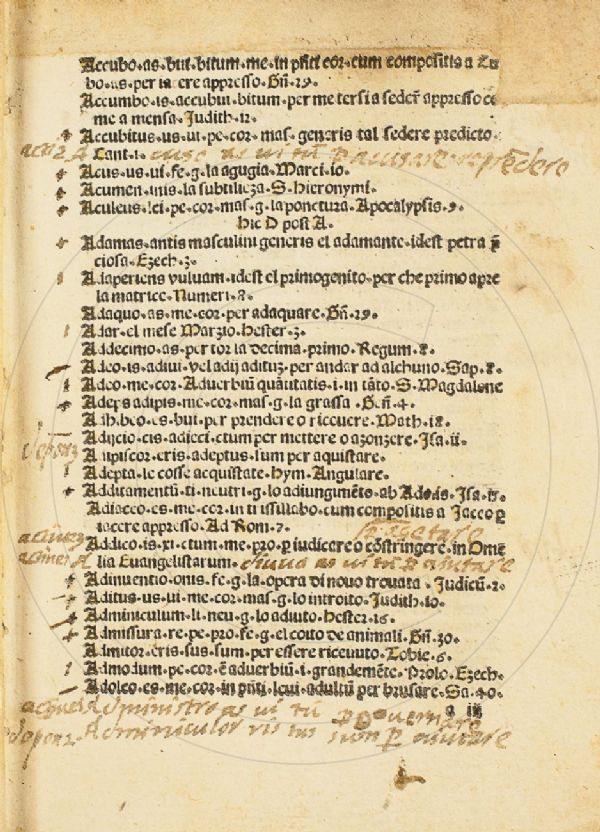 Accubo·as·bui·bitum·me·in p̄ſiti cor·cum compoſitis a Cu
bo·as·per iacere appreſſo·Gñ·19·
Accumbo·is·accubui·bitum·per meterſi a ſeder̄ appreſſo co
me a menſa·Judith·12·
Accubitus·us·ui·pe·cor·mas·generis tal ſedere predicto·
Cant·1· as ui tū
Acus·us·ui·fe·g·la agugia·Marci·10·
Acumen·inis·la ſubtilieza·S·Hieronymi·
Aculeus·lei·pe·cor·mas·g·la ponctura·Apocalypſis·9·
Hic D poſt A·
Adamas·antis maſculini generis el adamante·ideſt petra p̄
cioſa·Ezech·3·
Adaperiens vuluam·ideſt el primogenito·per che primo apre
la matrice·Numeri·8·
Adaquo·as·me·cor·per adaquare·Gñ·29·
Adar·el meſe Marzio·Heſter·3·
Addecimo·as·per tor la decima·primo·Regum·8·
Adeo·is·adiui·vel adij adituȝ·per andar ad alchuno·Sap·8·
Adeo·me·cor·Aduerbiū quātitatis·i·in tāto·S·Magdalene
Adeps adipis·me·cor·mas·g·la graſſa·Gen·4·
Adhibeo·es·bui·per prendere o riceuere·Math·18·
Adijcio·cis·adieci·ctum·per mettere o azonzere·Iſa·ii·
Adipiſcor·eris·adeptus·ſum·per aquiſtare·
Adepta·le coſſe acquiſtate·hym·Angulare·
Additamentū·ti·neutri·g·lo adiungimēto·ab Addo·is·Iſa·15·
Adiaceo·es·me·cor·in ti iſſillabo·cum compoſitis a Jaceo·ꝑ
iacere appreſſo·Ad Rom·7·
Addico·is·xi·ctum·me·pro·ꝑ iudicare o cōſtringere·in Ome
lia Euangeliſtarum· as ui tū ꝑ aiutare
Adinuentio·onis·fe·g·la opera di nouo trouata·Judicū·2·
Aditus·us·ui·me·cor·mas·g·lo introito·Judith·10·
Adminiculum·li·neu·g·lo adiuto·Heſter·16·
Admiſſura·re·pe·pro·fe·g·el coito de animali·Gñ·30·
Admitor·eris·ſus·ſum·per eſſere riceuuto·Tobie·6·
Admodum·pe·cor·ē aduerbiū·i·grandemēte·Prolo·Ezech·
Adoleo·es·me·cor·in p̄ſiti·leui·adultū per bruſare·Sa·40·
a iii
Administro as ui tū ꝑ gouernare
Adminiculor ris tus sum ꝑ aiutare